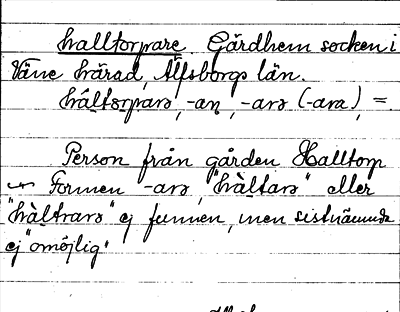 halltorpare. Gärdhem socken i
Väne härad, Älfsborgs län.
hál̀tɷrparə, -an, -arə (-ara), =.
Person från gården Halltorp
Formen -arə, "hàltarə" eller
"hàltrarə" ej funnen, men sistnämnda
ej "omöjlig".